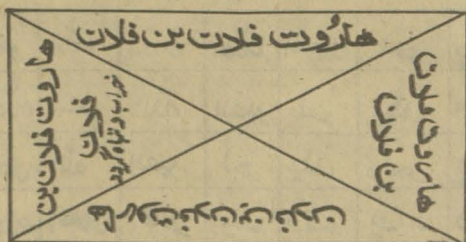 هارُوت فلان بن فلان
هاروت فلان
بن فلان
هاروت فلان بن
فلان
خراب و تباه گردد